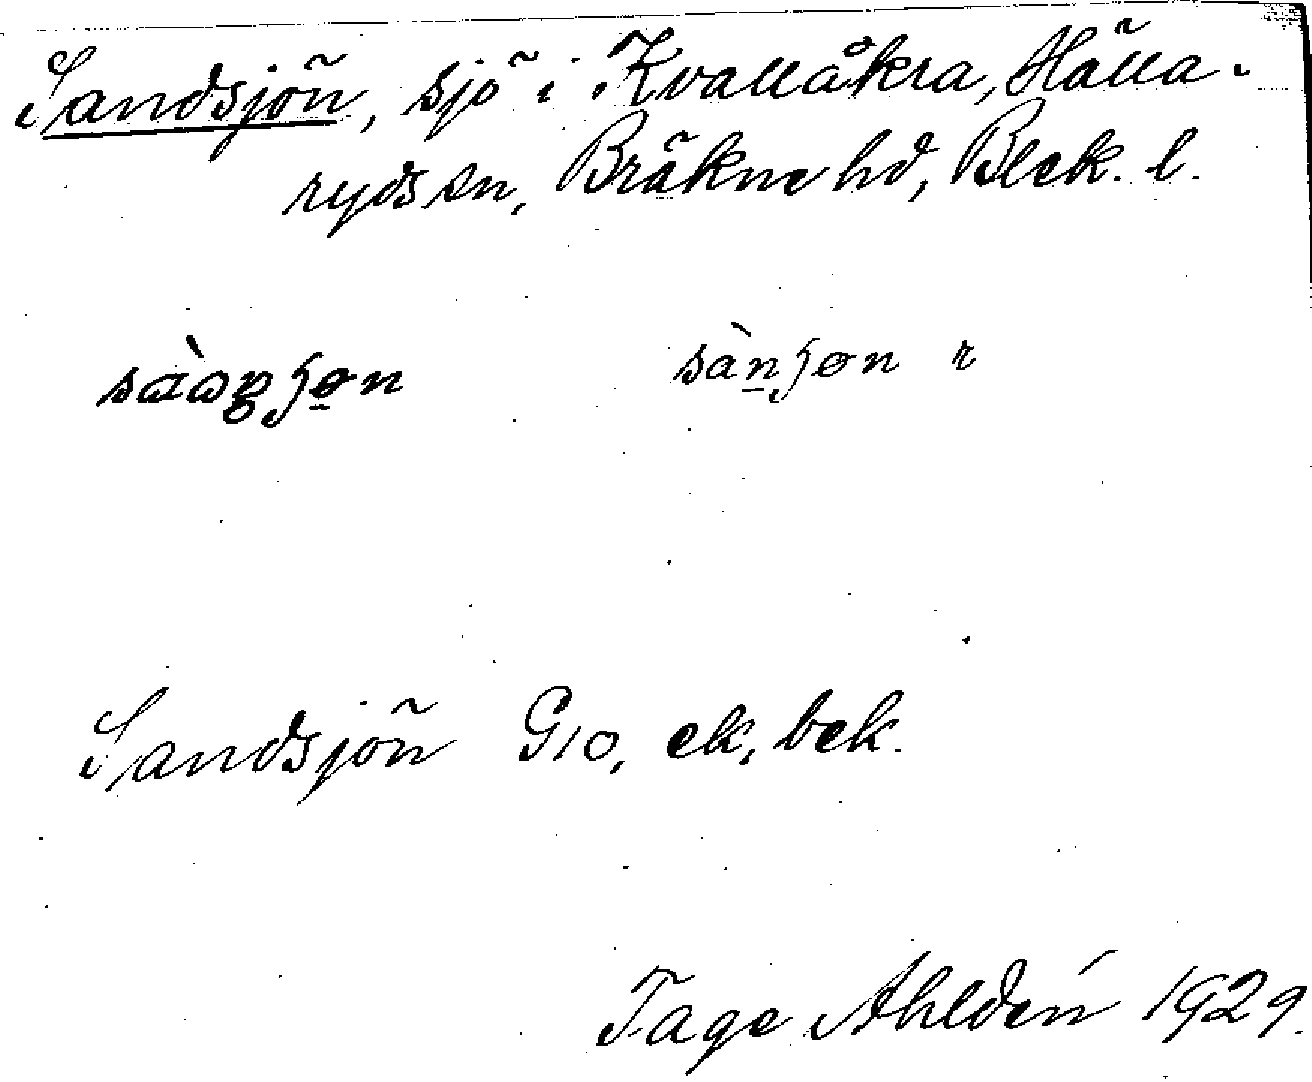 Sandsjön, sjö i Kvallåkra, Hälla-
ryds sn, Bräkne hd, Blek. l.
sànjøn r
Sandsjön G10, ek, bek.
Tage Ahldén 1929.